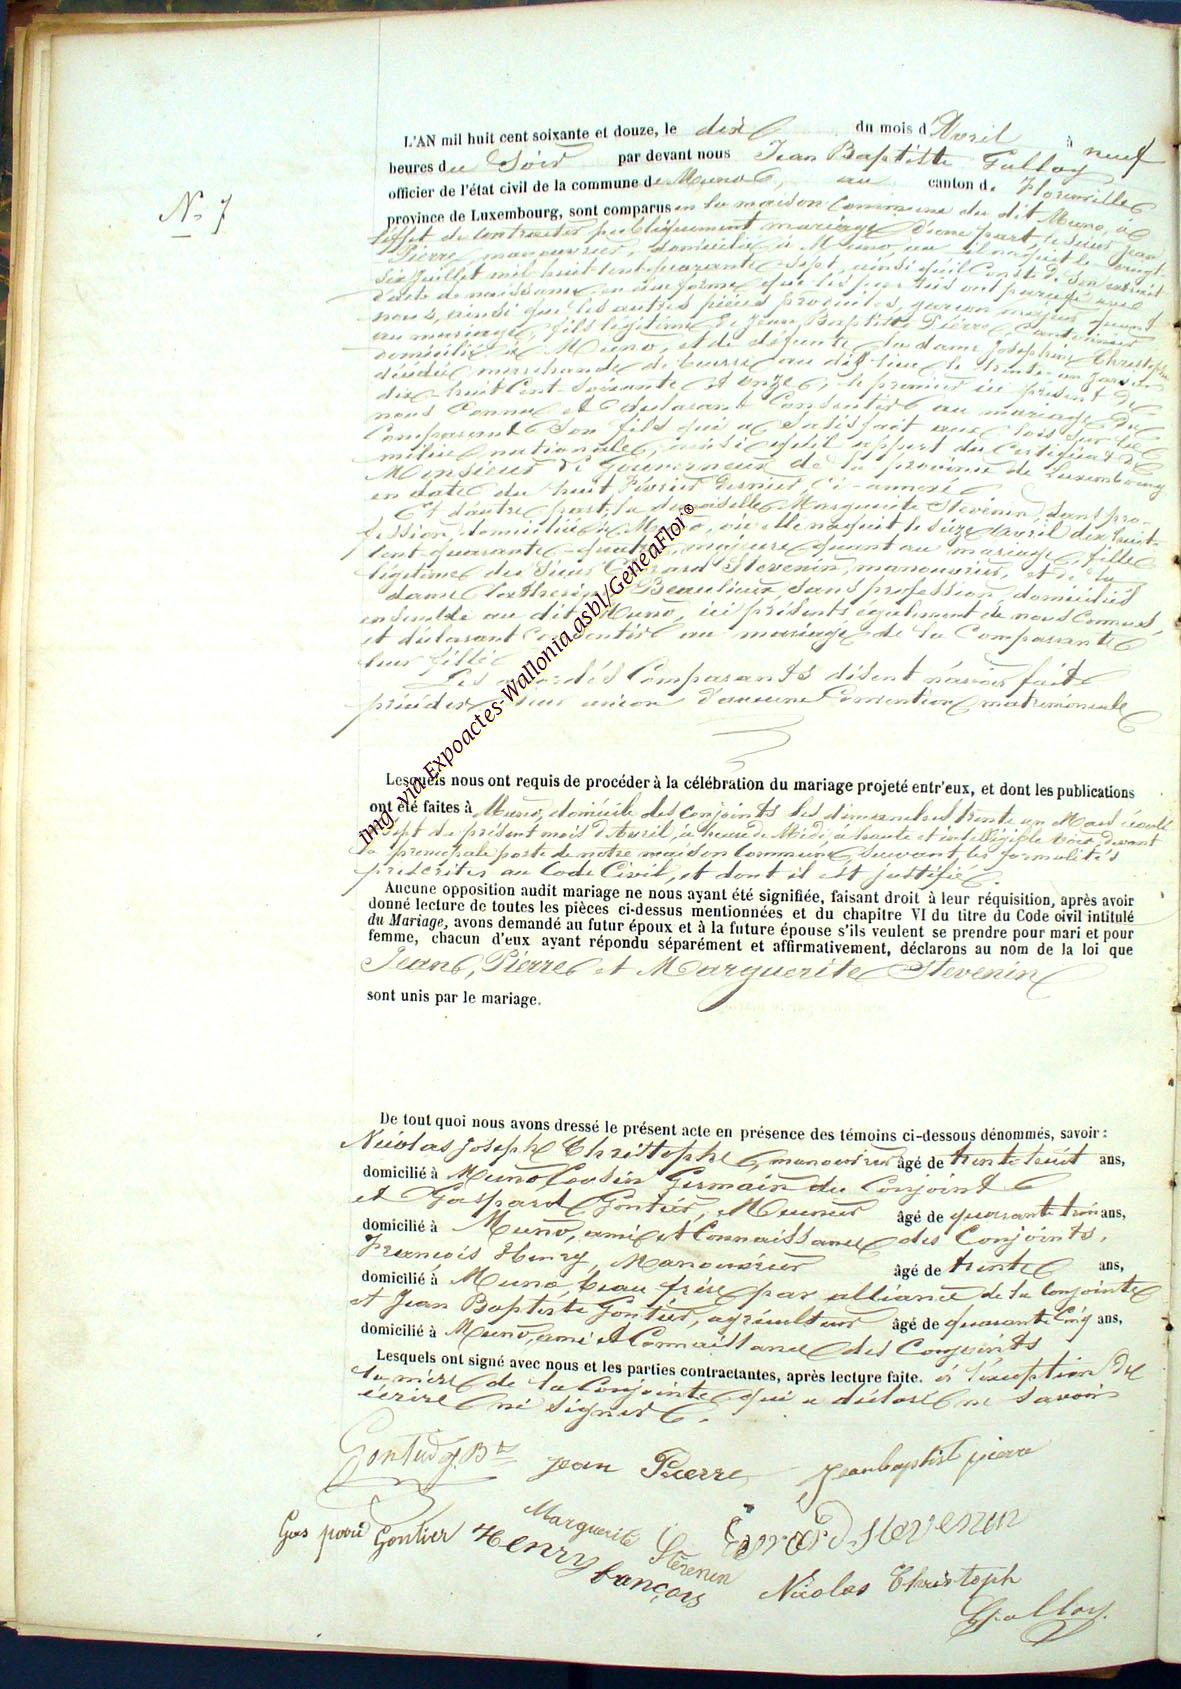 N° 7
L'AN mil huit cent soixante et douze, le dix du mois d'Avril à neuf
heures du Soir par devant nous Jean Baptiste Galloy
officier de l'état civil de la commune de Muno, au canton de Florenville
province de Luxembourg, sont comparus en la maison Commune du dit Muno, à
l'effet de Contracter publiquement mariage d'une part, le sieur Jean
Pierre, manouvrier, domicilié à Muno, où il naquit le vingt-
six Juillet mil huit cent quarante-sept, ainsi qu'il Conste de Son extrait
d'acte de naissance en due forme que les parties ont paraphé avec
nous, ainsi que les autres pièces produites, garçon majeur quant
au mariage, fils légitime de Jean Baptiste Pierre, Cantonnier
domicilié à Muno, et de défunte la dame Josephine Christophe
décédée, marchande de beurre, au dit lieu le trente un Janvier
dix-huit Cent Soixante et onze, le premier ici présent de
nous Connu et déclarant Consentir au mariage du
Comparant Son fils qui a Satisfait aux lois sur la
milice nationale, ainsi qu'il appert du Certificat de
Monsieur le Gouverneur de la province de Luxembourg
en date du huit Février dernier, ci-annexé
Et d'autre part, la demoiselle Marguerite Stevenin, sans pro-
fession, domiciliée à Muno, où elle naquit le seize avril dix huit-
cent-quarante-quatre, majeure quant au mariage, fille
légitime du Sieur Evrard Stevenin, manouvrier, et de la
dame Catherine Beaulieux, sans profession, domiciliés
ensemble au dit Muno, ici présents également de nous Connus,
et déclarant Consentir au mariage de la Comparante
leur fille
Les susdits Comparants disent n'avoir fait
précéder leur union d'aucune Convention matrimoniale
Lesquels nous ont requis de procéder à la célébration du mariage projeté entr'eux, et dont les publications
ont été faites à Muno, domicile des conjoints les dimanches trente un Mars écoulé
et Sept du présent mois d'Avril, à heure de Midi, à haute et intelligible voix, devant
la principale porte de notre maison Commune, suivant les formalités
prescrites au Code Civil, et dont il est justifié.
Aucune opposition audit mariage ne nous ayant été signifiée, faisant droit à leur réquisition, après avoir
donné lecture de toutes les pièces ci-dessus mentionnées et du chapitre VI du titre du Code civil intitulé
du Mariage, avons demandé au futur époux et à la future épouse s'ils veulent se prendre pour mari et pour
femme, chacun d'eux ayant répondu séparément et affirmativement, déclarons au nom de la loi que
Jean Pierre et Marguerite Stevenin
sont unis par le mariage.
De tout quoi nous avons dressé le présent acte en présence des témoins ci-dessous dénommés, savoir :
Nicolas Joseph Christophe, manouvrier âgé de trente huit ans,
domicilié à Muno Cousin Germain du Conjoint
et Gaspard Gontier, Meunier âgé de quarante trois ans,
domicilié à Muno, ami et Connaissance des Conjoints,
François Henry, Manouvrier âgé de trente ans,
domicilié à Muno, beau frère par alliance de la Conjointe
et Jean Baptiste Gontier, agriculteur âgé de quarante Cinq ans,
domicilié à Muno, ami et Connaissance des Conjoints
Lesquels ont signé avec nous et les parties contractantes, après lecture faite. à l'exception de
la mère de la Conjointe qui a déclaré ne savoir
écrire ni signer.
Gontier J. Bte Jean Pierre Jean baptist pierre
Gas pard Gontier Henry françois Marguerite Stevenin Evrard Stevenin
Nicolas Christoph
Galloy.
img via Expoactes-Wallonia.asbl/GeneaFlor®